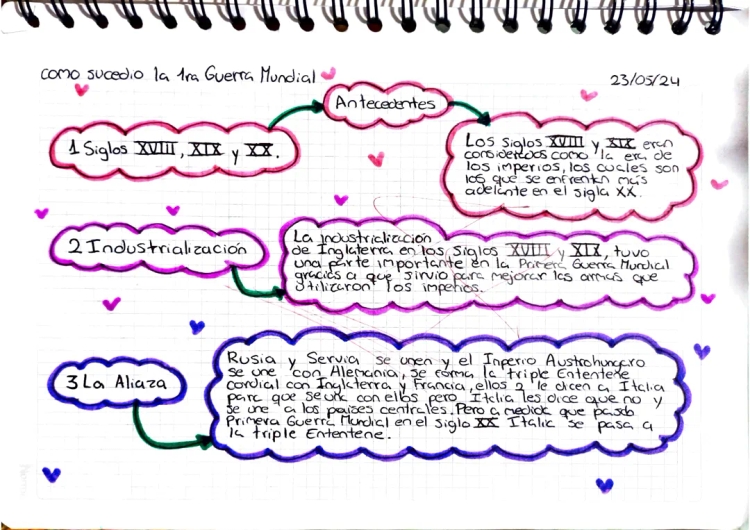 como sucedio la 1ra Guerra Mundial
23/05/24
Antecedentes
1 Siglos XVIII, XIX y XX.
Los siglos XVIII y XIX eran
considerados como la era de
los imperios, los cuales son
los que se enfrentan más
adelante en el sigla XX.
2 Industrialización
La industrialización
de Inglaterra en los siglos XVIII y XIX, tuvo
una parte importante en la Primera Guerra Mundial
gracias a que sirvio para mejorar las armas que
utilizaron los imperios.
3 La Aliaza
Rusia y Servia se unen y el Inperio Austrohungaro
se une con Alemania, se forma la triple Ententexe
cordial con Inglaterra y Francia, ellos 2 le dicen a Italia
para que se una con ellos pero Italia les dice que no y
se une a los paises centrales. Pero a medida que pasab
Primera Guerra Mundial en el siglo XX Italia se pasa a
la triple Ententene.